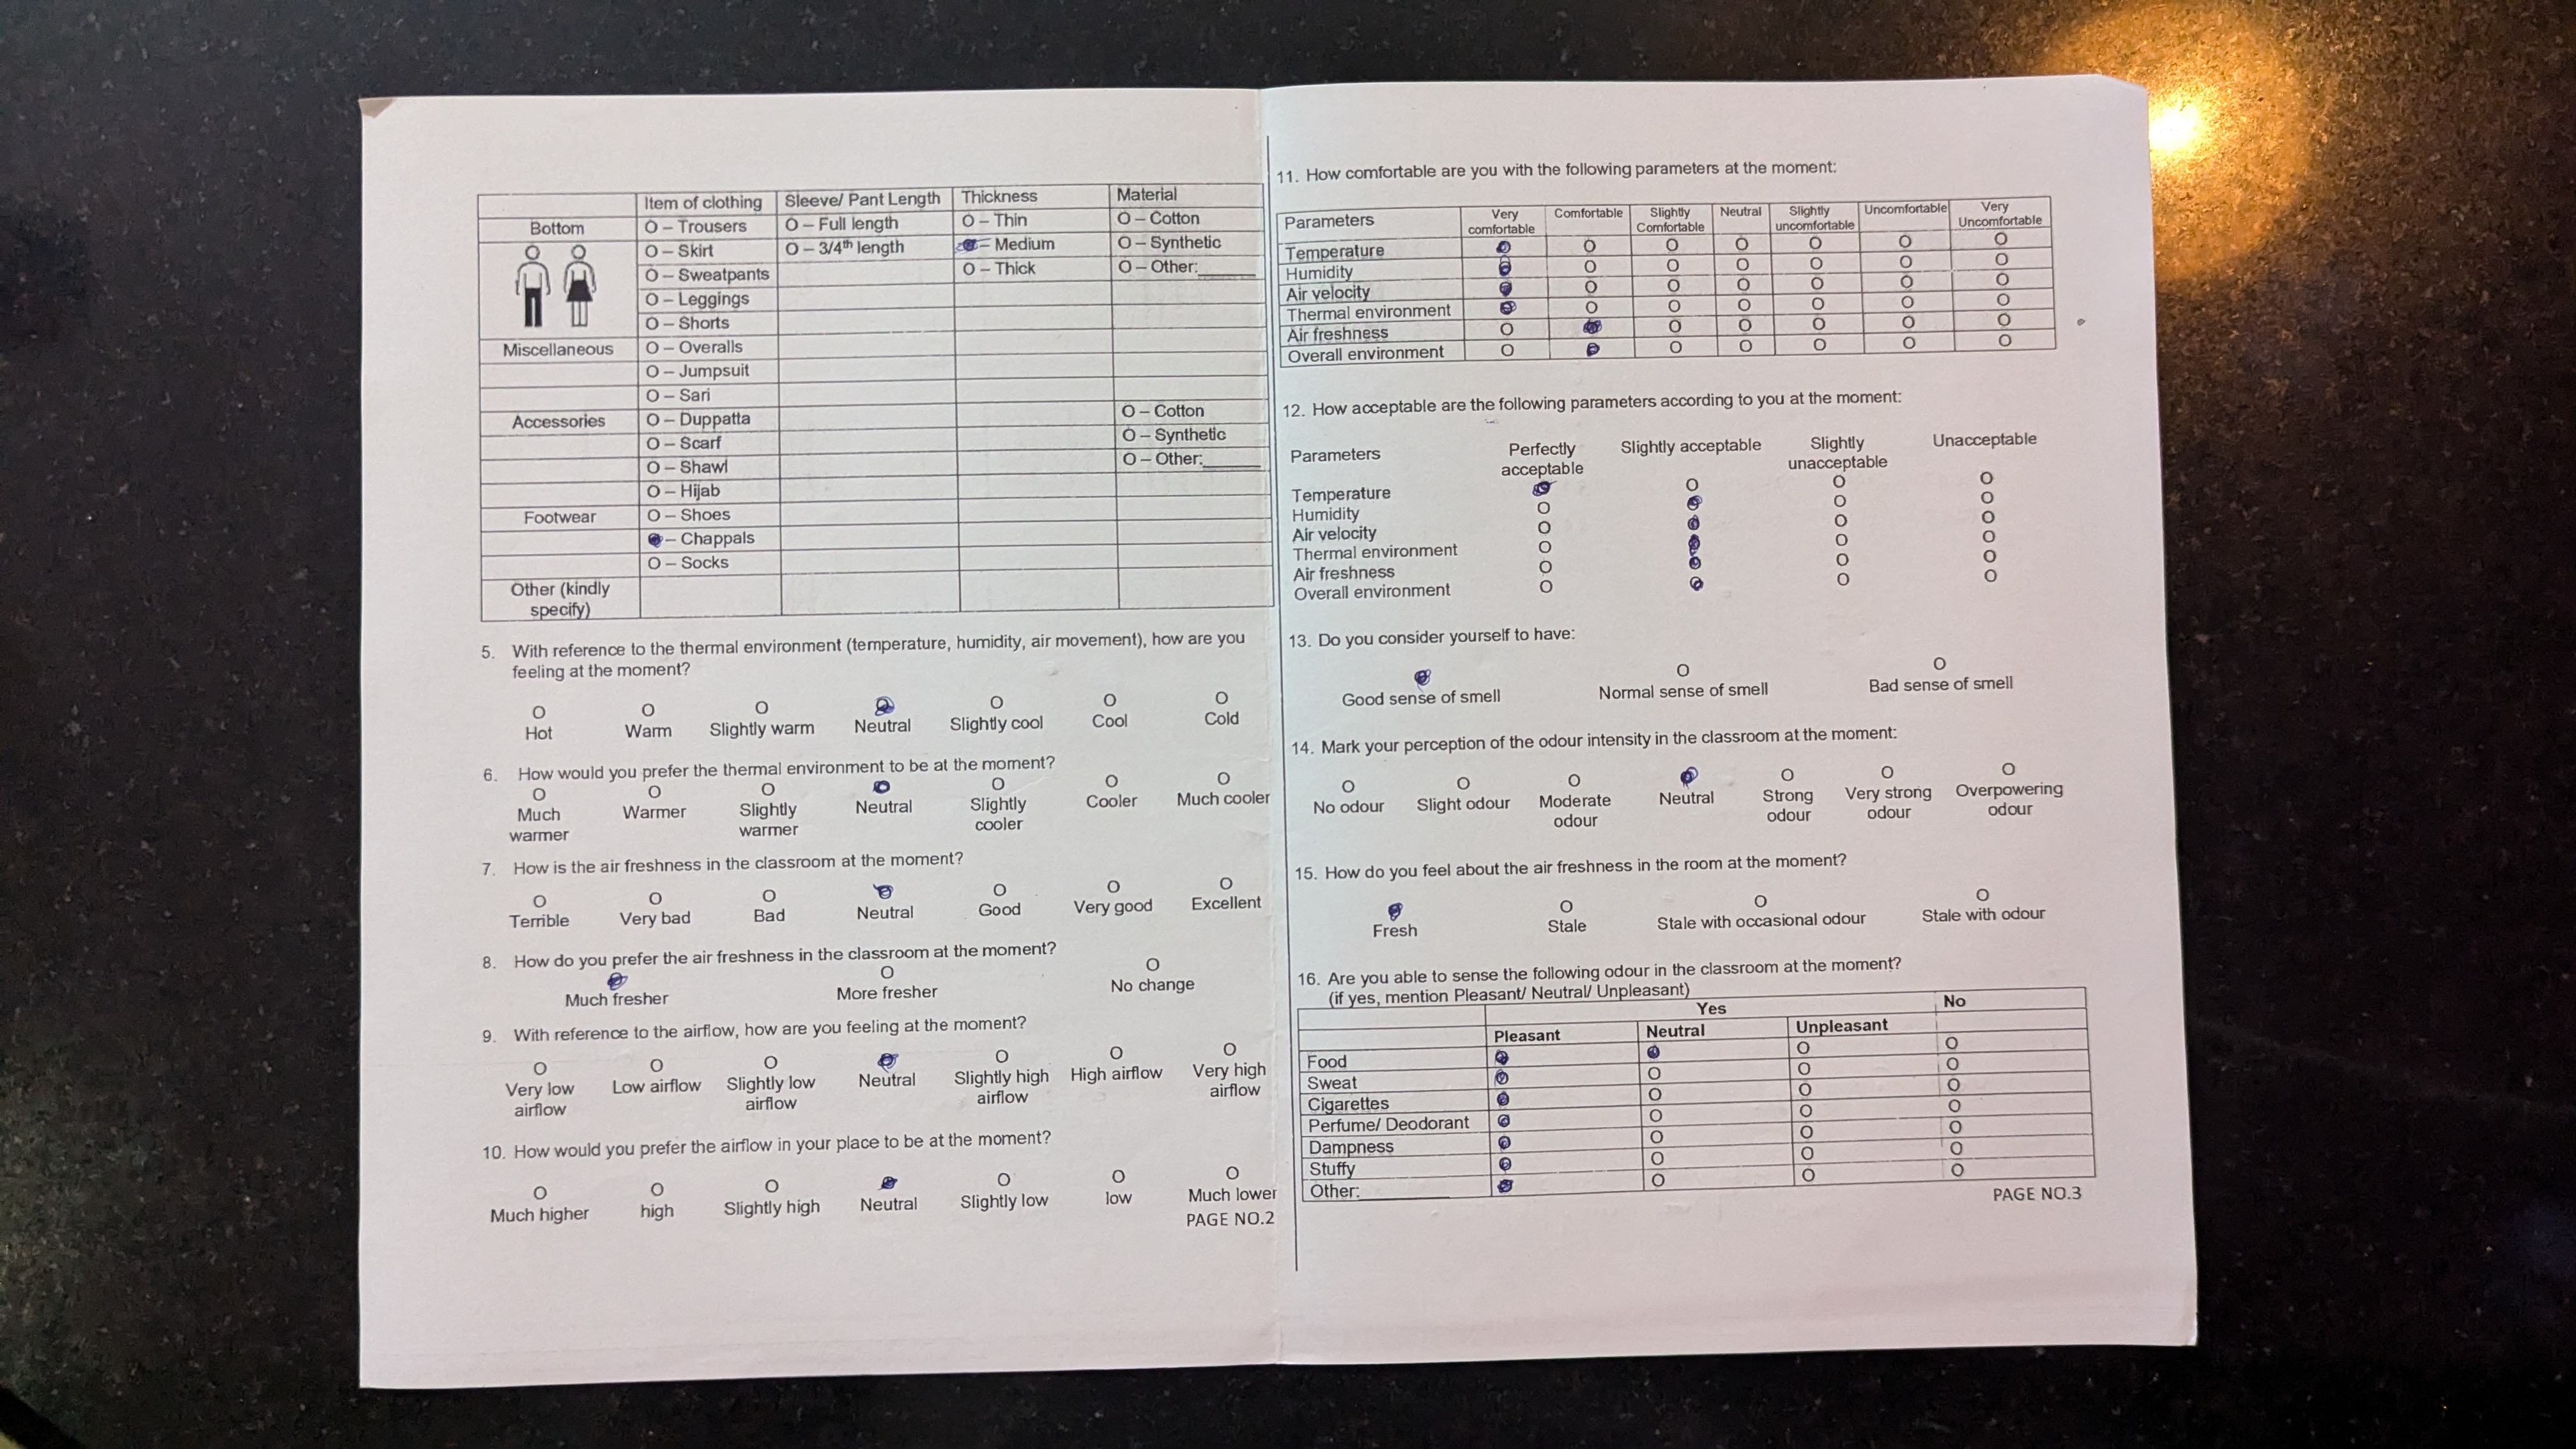 Item of clothing Sleeve/ Pant Length Thickness Material
Bottom O – Trousers O – Full length O – Thin O – Cotton
O – Skirt O – 3/4th length – Medium O – Synthetic
O – Sweatpants O – Thick O – Other:______
O – Leggings
O – Shorts
Miscellaneous O – Overalls
O – Jumpsuit
O – Sari
Accessories O – Duppatta O – Cotton
O – Scarf O – Synthetic
O – Shawl O – Other:______
O – Hijab
Footwear O – Shoes
– Chappals
O – Socks
Other (kindly
specify)
5. With reference to the thermal environment (temperature, humidity, air movement), how are you
feeling at the moment?
O O O O O O
Hot Warm Slightly warm Neutral Slightly cool Cool Cold
6. How would you prefer the thermal environment to be at the moment?
O O O O O O
Much Warmer Slightly Neutral Slightly Cooler Much cooler
warmer warmer cooler
7. How is the air freshness in the classroom at the moment?
O O O O O O
Terrible Very bad Bad Neutral Good Very good Excellent
8. How do you prefer the air freshness in the classroom at the moment?
O O
Much fresher More fresher No change
9. With reference to the airflow, how are you feeling at the moment?
O O O O O O
Very low Low airflow Slightly low Neutral Slightly high High airflow Very high
airflow airflow airflow airflow
10. How would you prefer the airflow in your place to be at the moment?
O O O O O O
Much higher high Slightly high Neutral Slightly low low Much lower
PAGE NO.2
11. How comfortable are you with the following parameters at the moment:
Parameters Very Comfortable Slightly Neutral Slightly Uncomfortable Very
comfortable Comfortable uncomfortable Uncomfortable
Temperature O O O O O O
Humidity O O O O O O
Air velocity O O O O O O
Thermal environment O O O O O O
Air freshness O O O O O O
Overall environment O O O O O O
12. How acceptable are the following parameters according to you at the moment:
Parameters Perfectly Slightly acceptable Slightly Unacceptable
acceptable unacceptable
Temperature O O O
Humidity O O O
Air velocity O O O
Thermal environment O O O
Air freshness O O O
Overall environment O O O
13. Do you consider yourself to have:
O O
Good sense of smell Normal sense of smell Bad sense of smell
14. Mark your perception of the odour intensity in the classroom at the moment:
O O O O O O
No odour Slight odour Moderate Neutral Strong Very strong Overpowering
odour odour odour odour
15. How do you feel about the air freshness in the room at the moment?
O O O
Fresh Stale Stale with occasional odour Stale with odour
16. Are you able to sense the following odour in the classroom at the moment?
(if yes, mention Pleasant/ Neutral/ Unpleasant)
Yes No
Pleasant Neutral Unpleasant
Food O O
Sweat O O O
Cigarettes O O O
Perfume/ Deodorant O O O
Dampness O O O
Stuffy O O O
Other:________ O O O
PAGE NO.3